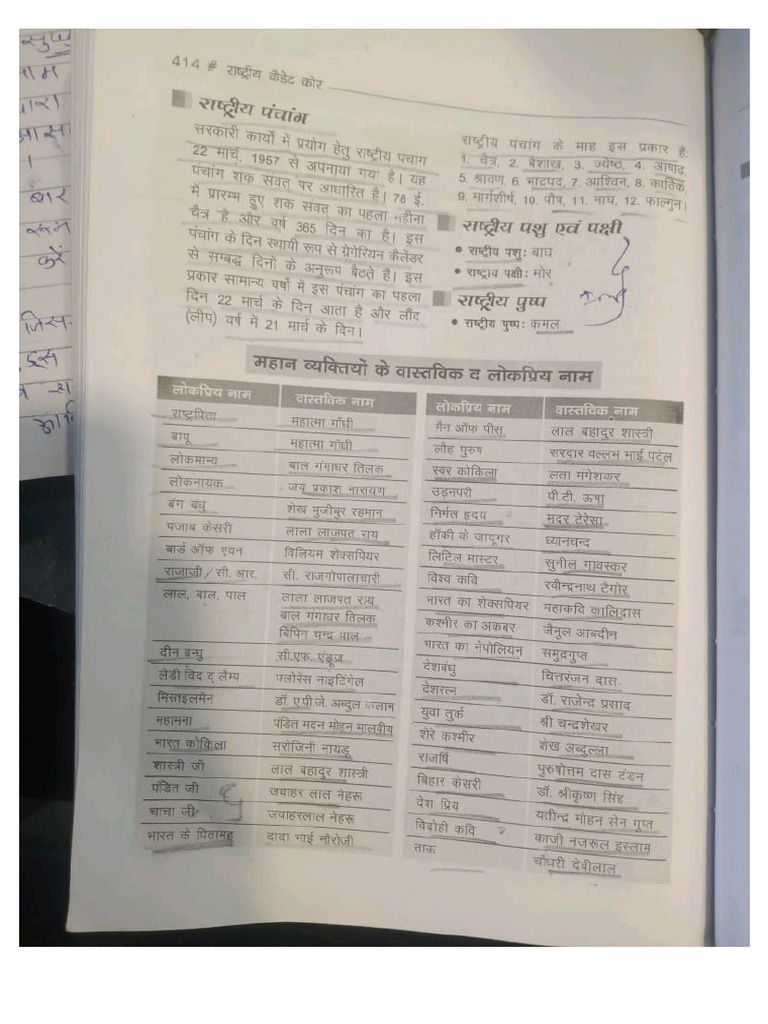 414 # राष्ट्रीय कैडेट कोर
राष्ट्रीय पंचांग
सरकारी कार्यों में प्रयोग हेतु राष्ट्रीय पंचांग
22 मार्च, 1957 से अपनाया गया है। यह
पंचांग शक संवत् पर आधारित है। 78 ई.
में प्रारम्भ हुए शक संवत का पहला महीना
चैत्र है और वर्ष 365 दिन का है। इस
पंचांग के दिन स्थायी रूप से ग्रेगेरियन कैलेंडर
से सम्बद्ध दिनों के अनुरूप बैठते है। इस
प्रकार सामान्य वर्षों में इस पंचांग का पहला
दिन 22 मार्च के दिन आता है और लौंद
(लीप) वर्ष में 21 मार्च के दिन।
राष्ट्रीय पंचांग के माह इस प्रकार है:
1. चैत्र, 2. बैशाख, 3. ज्येष्ठ, 4. आषाढ़,
5. श्रावण, 6. भाद्रपद, 7. आश्विन, 8. कार्तिक,
9. मार्गशीर्ष, 10. पौष, 11. माघ, 12. फाल्गुन।
राष्ट्रीय पशु एवं पक्षी
• राष्ट्रीय पशु: बाघ
• राष्ट्रीय पक्षी: मोर
राष्ट्रीय पुष्प
• राष्ट्रीय पुष्प: कमल
महान व्यक्तियों के वास्तविक द लोकप्रिय नाम
लोकप्रिय नाम वास्तविक नाम
राष्ट्रपिता महात्मा गाँधी
बापू महात्मा गाँधी
लोकमान्य बाल गंगाधर तिलक
लोकनायक जय प्रकाश नारायण
बंग बंधु शेख मुजीबुर रहमान
पंजाब केसरी लाला लाजपत राय
बार्ड ऑफ एवन विलियम शेक्सपियर
राजाजी/सी. आर. सी. राजगोपालाचारी
लाल, बाल, पाल लाला लाजपत राय
बाल गंगाधर तिलक
बिपिन चन्द्र पाल
दीन बन्धु सी.एफ. एंड्रूज
लेडी विद द लैम्प फ्लोरेंस नाइटिंगेल
मिसाइलमैन डॉ. ए.पी.जे. अब्दुल कलाम
महामना पंडित मदन मोहन मालवीय
भारत कोकिला सरोजिनी नायडू
शास्त्री जी लाल बहादुर शास्त्री
पंडित जी जवाहर लाल नेहरू
चाचा जी जवाहरलाल नेहरू
भारत के पितामह दादा भाई नौरोजी
लोकप्रिय नाम वास्तविक नाम
मैन ऑफ पीस लाल बहादुर शास्त्री
लौह पुरुष सरदार वल्लभ भाई पटेल
स्वर कोकिला लता मंगेशकर
उड़नपरी पी.टी. ऊषा
निर्मल हृदय मदर टेरेसा
हॉकी के जादूगर ध्यानचन्द
लिटिल मास्टर सुनील गावस्कर
विश्व कवि रवीन्द्रनाथ टैगोर
भारत का शेक्सपियर महाकवि कालिदास
कश्मीर का अकबर जैनुल आबदीन
भारत का नेपोलियन समुद्रगुप्त
देशबंधु चित्तरंजन दास
देशरत्न डॉ. राजेन्द्र प्रसाद
युवा तुर्क श्री चन्द्रशेखर
शेरे कश्मीर शेख अब्दुल्ला
राजर्षि पुरुषोत्तम दास टंडन
बिहार केसरी डॉ. श्रीकृष्ण सिंह
देश प्रिय यतीन्द्र मोहन सेन गुप्त
विद्रोही कवि काजी नजरूल इस्लाम
ताऊ चौधरी देवीलाल
बार
करें
जिस
इस